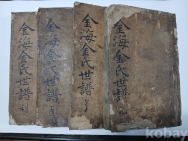 金海金氏世譜
金海金氏世譜
金海金氏世譜
金海金氏世譜
kobay